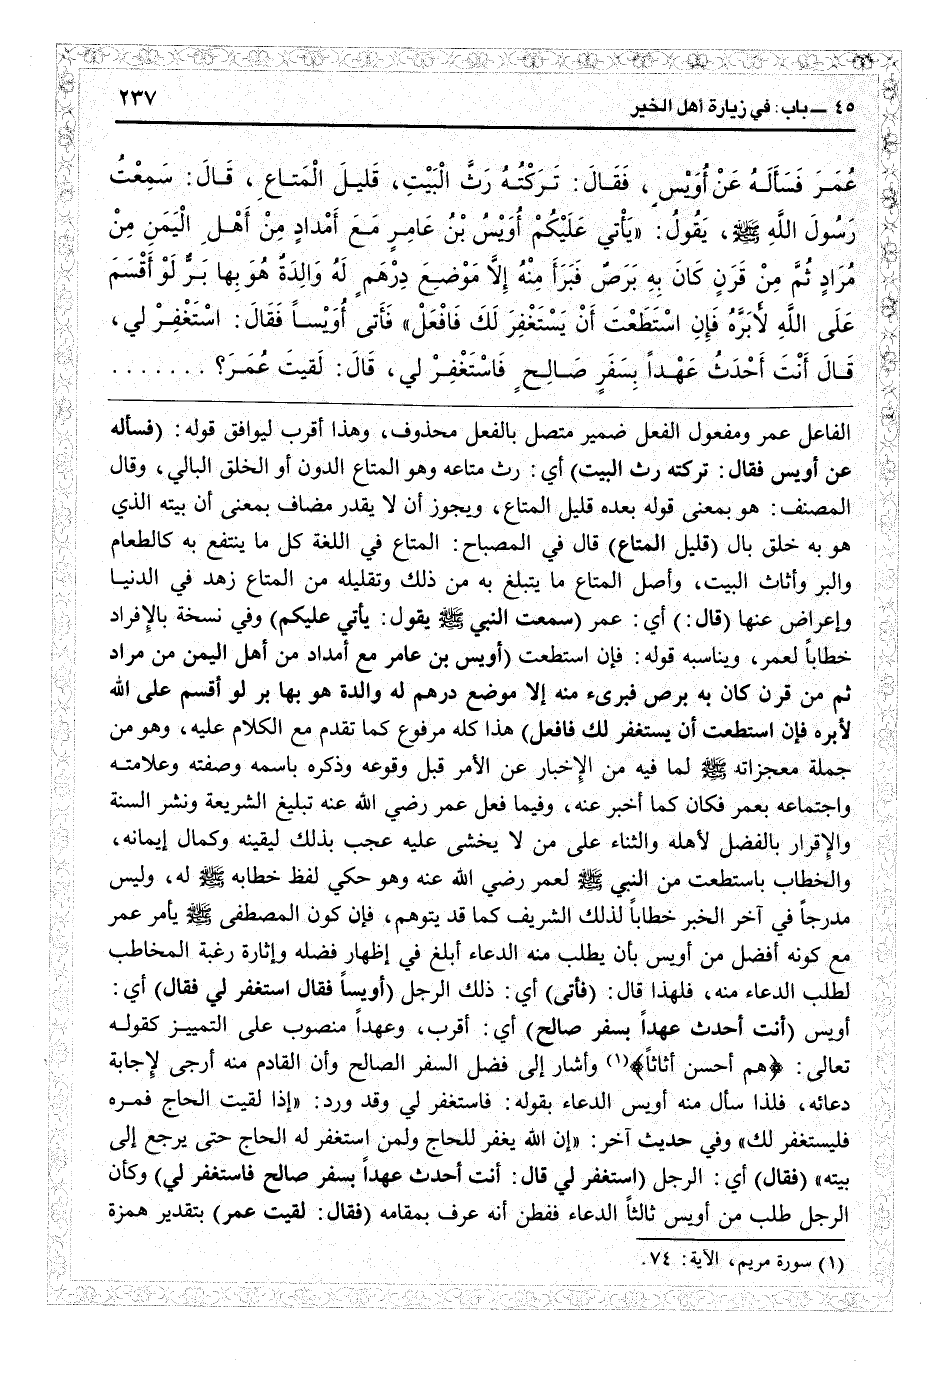 ٤٥ ــ باب: في زيارة أهل الخير
٢٣٧
عُمَرَ فَسَأَلَهُ عَنْ أُوَيْسٍ، فَقَالَ: تَرَكْتُهُ رَثَّ الْبَيْتِ، قَلِيلَ الْمَتَاعِ، قَالَ: سَمِعْتُ
رَسُولَ اللَّهِ ﷺ، يَقُولُ: «يَأْتي عَلَيْكُمْ أُوَيْسُ بْنُ عَامِرٍ مَعَ أَمْدَادٍ مِنْ أَهْلِ الْيَمَنِ مِنْ
مُرَادٍ ثُمَّ مِنْ قَرَنٍ كَانَ بِهِ بَرَصٌ فَبَرَأَ مِنْهُ إِلَّا مَوْضِعَ دِرْهَمٍ لَهُ وَالِدَةٌ هُوَ بِها بَرٌّ لَوْ أَقْسَمَ
عَلَى اللَّهِ لأَبَرَّهُ فَإِن اسْتَطَعْتَ أَنْ يَسْتَغْفِرَ لَكَ فَافْعَلْ» فَأَتى أُوَيْساً فَقَالَ: اسْتَغْفِرْ لي،
قَالَ أَنْتَ أَحْدَثُ عَهْداً بِسَفَرٍ صَالِحٍ فَاسْتَغْفِرْ لي، قَالَ: لَقيتَ عُمَرَ؟ .......
الفاعل عمر ومفعول الفعل ضمير متصل بالفعل محذوف، وهذا أقرب ليوافق قوله: (فسأله
عن أويس فقال: تركته رث البيت) أي: رث متاعه وهو المتاع الدون أو الخلق البالي، وقال
المصنف: هو بمعنى قوله بعده قليل المتاع، ويجوز أن لا يقدر مضاف بمعنى أن بيته الذي
هو به خلق بال (قليل المتاع) قال في المصباح: المتاع في اللغة كل ما ينتفع به كالطعام
والبر وأثاث البيت، وأصل المتاع ما يتبلغ به من ذلك وتقليله من المتاع زهد في الدنيا
وإعراض عنها (قال:) أي: عمر (سمعت النبي ﷺ يقول: يأتي عليكم) وفي نسخة بالإفراد
خطاباً لعمر، ويناسبه قوله: فإن استطعت (أويس بن عامر مع أمداد من أهل اليمن من مراد
ثم من قرن كان به برص فبرىء منه إلا موضع درهم له والدة هو بها بر لو أقسم على الله
لأبره فإن استطعت أن يستغفر لك فافعل) هذا كله مرفوع كما تقدم مع الكلام عليه، وهو من
جملة معجزاته ﷺ لما فيه من الإخبار عن الأمر قبل وقوعه وذكره باسمه وصفته وعلامته
واجتماعه بعمر فكان كما أخبر عنه، وفيما فعل عمر رضي الله عنه تبليغ الشريعة ونشر السنة
والإقرار بالفضل لأهله والثناء على من لا يخشى عليه عجب بذلك ليقينه وكمال إيمانه،
والخطاب باستطعت من النبي ﷺ لعمر رضي الله عنه وهو حكي لفظ خطابه ﷺ له، وليس
مدرجاً في آخر الخبر خطاباً لذلك الشريف كما قد يتوهم، فإن كون المصطفى ﷺ يأمر عمر
مع كونه أفضل من أويس بأن يطلب منه الدعاء أبلغ في إظهار فضله وإثارة رغبة المخاطب
لطلب الدعاء منه، فلهذا قال: (فأتى) أي: ذلك الرجل (أويساً فقال استغفر لي فقال) أي:
أويس (أنت أحدث عهداً بسفر صالح) أي: أقرب، وعهداً منصوب على التمييز كقوله
تعالى: ﴿هم أحسن أثاثاً﴾(١) وأشار إلى فضل السفر الصالح وأن القادم منه أرجى لإجابة
دعائه، فلذا سأل منه أويس الدعاء بقوله: فاستغفر لي وقد ورد: «إذا لقيت الحاج فمره
فليستغفر لك» وفي حديث آخر: «إن الله يغفر للحاج ولمن استغفر له الحاج حتى يرجع إلى
بيته» (فقال) أي: الرجل (استغفر لي قال: أنت أحدث عهداً بسفر صالح فاستغفر لي) وكأن
الرجل طلب من أويس ثالثاً الدعاء ففطن أنه عرف بمقامه (فقال: لقيت عمر) بتقدير همزة
(١) سورة مريم، الآية: ٧٤.